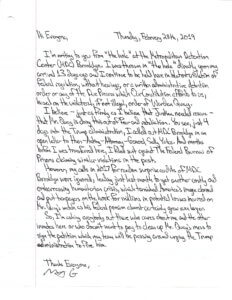 Hi Everyone,
Thursday, February 28th, 2019
I'm writing to you from "the hole" at the Metropolitan Detention
Center (MDC) Brooklyn. I was thrown in "the hole"
around 13 days ago and continue to be held here in
federal regulation, without hearings, or a written administrative detention
order or any of the Due Process which Our Constitution affords to us,
based on the unlawful, if not illegal, order of Warden Quay.
I believe - just as firmly as I believe that
that Mr. Quay is doing this out of fear and retaliation. You see, just
days into the Trump administration, I called out MDC Brooklyn in an
open letter to then-Acting-Attorney-General, Sally Yates. And months
before I was transferred here, I filed suit against the Federal Bureau of
Prisons claiming similar violations in the past.
However, my calls in 2017 for
Brooklyn were ignored; leading just last month to yet another costly and
embarrassing humanitarian crisis, which tarnished America's image abroad
and put taxpayers on the hook for millions in potential losses incurred on
Mr. Quay's watch as his federal pension almost certainly grew even larger.
So, I'm asking everybody out there who cares about me and the other
inmates here or who doesn't want to pay to clean up Mr. Quay's mess to
sign the petition which my team will be passing around urging the Trump
administration to fire him.
Thanks Everyone,